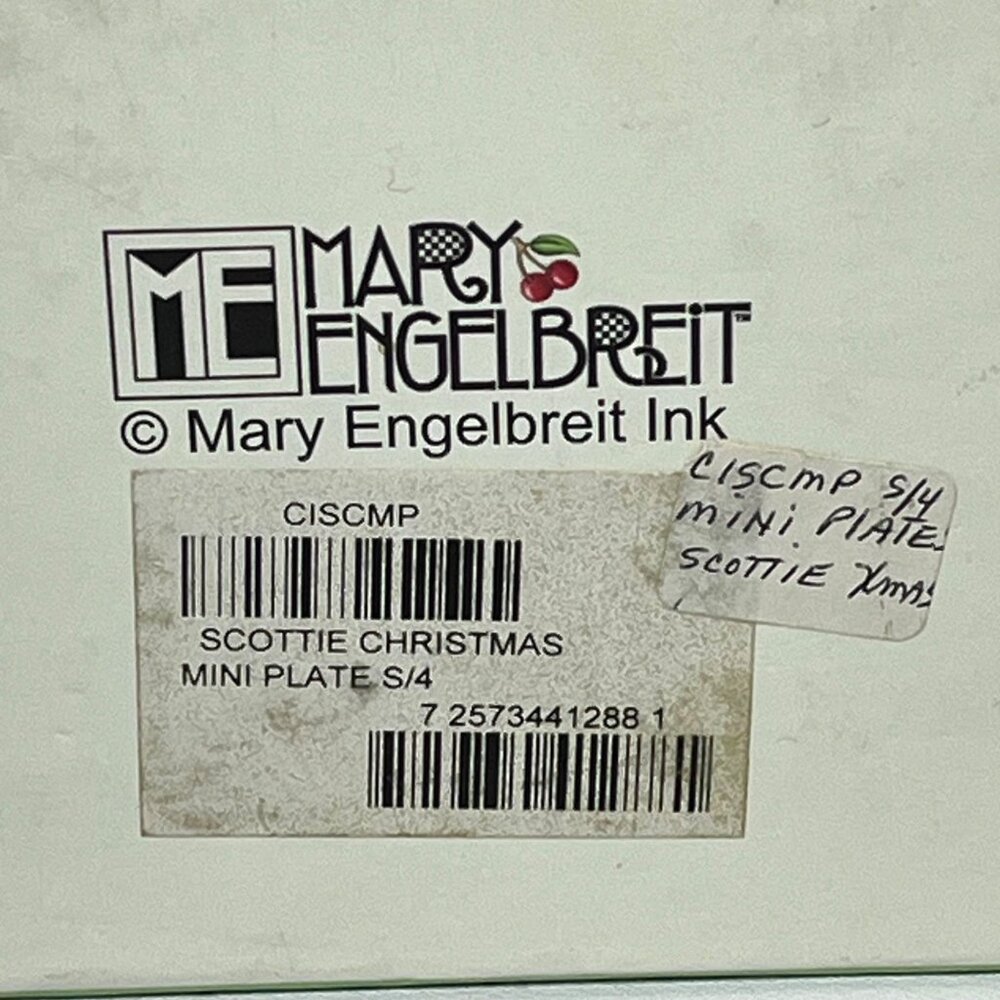 ME
MARY
ENGELBREIT™
© Mary Engelbreit Ink
CISCMP
SCOTTIE CHRISTMAS
MINI PLATE S/4
7 2573441288 1
CISCMP S/4
MiNi PlATE
SCOTTIE Xmas